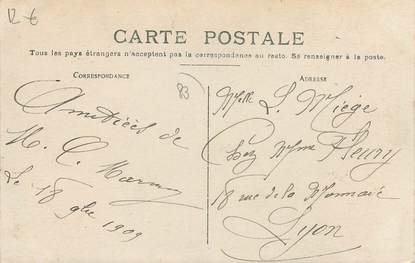 12 €
CARTE POSTALE
Tous les pays étrangers n'acceptent pas la correspondance au recto. Se renseigner à la poste.
CORRESPONDANCE
ADRESSE
83
Amitiés de
M. C.
Le 18 9bre 1909
Melle L. Miège
Chez Mme Fleury
18 rue de la Monnaie
Lyon